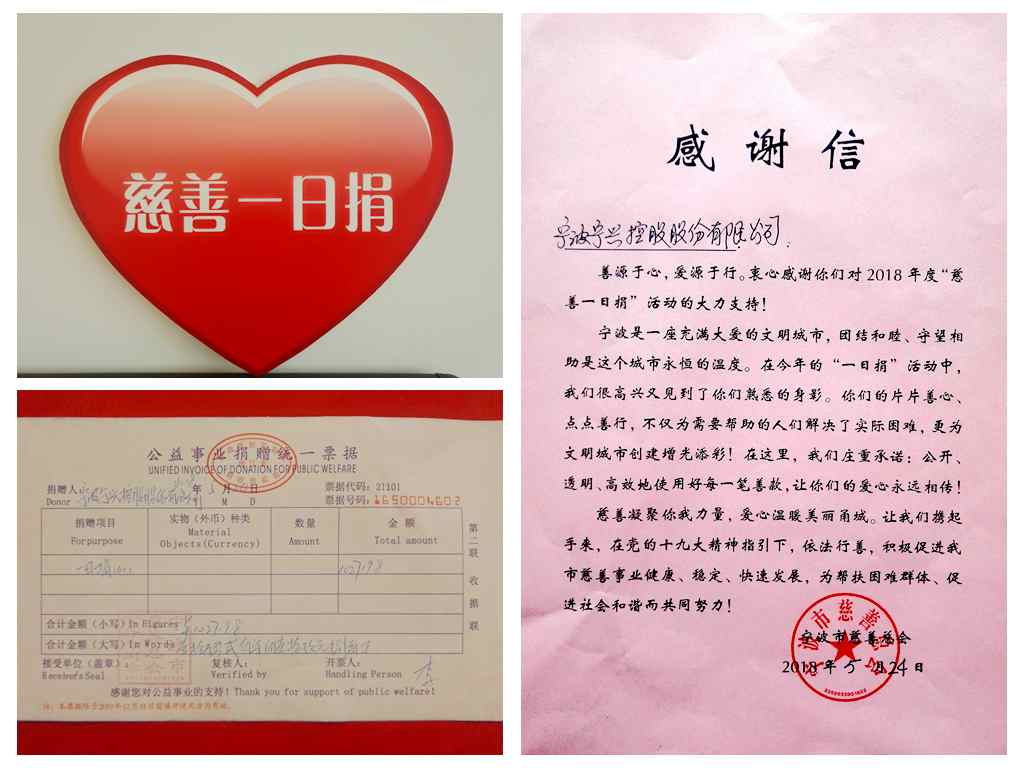 慈善一日捐
公益事业捐赠统一票据
UNIFIED INVOICE OF DONATION FOR PUBLIC WELFARE
捐赠人 宁波宁兴控股股份有限公司 年 5 月 日 票据代码：27101
Donor Y M D 票据号码：1650004602
捐赠项目 实物（外币）种类 数量 金额
For purpose Material Objects(Currency) Amount Total amount
一日捐
第二联 收据联
合计金额（小写）In Figures
合计金额（大写）In Words
接受单位（盖章）： 复核人： 开票人： 李
Receiver's Seal Verified by Handling Person
感谢您对公益事业的支持！Thank you for support of public welfare!
感谢信
宁波宁兴控股股份有限公司.
善源于心，爱源于行。衷心感谢你们对 2018 年度“慈
善一日捐”活动的大力支持！
宁波是一座充满大爱的文明城市，团结和睦、守望相
助是这个城市永恒的温度。在今年的“一日捐”活动中，
我们很高兴又见到了你们熟悉的身影。你们的片片善心、
点点善行，不仅为需要帮助的人们解决了实际困难，更为
文明城市创建增光添彩！在这里，我们庄重承诺：公开、
透明、高效地使用好每一笔善款，让你们的爱心永远相传！
慈善凝聚你我力量，爱心温暖美丽甬城。让我们携起
手来，在党的十九大精神指引下，依法行善，积极促进我
市慈善事业健康、稳定、快速发展，为帮扶困难群体、促
进社会和谐而共同努力！
宁波市慈善总会
2018 年 5 月 24 日